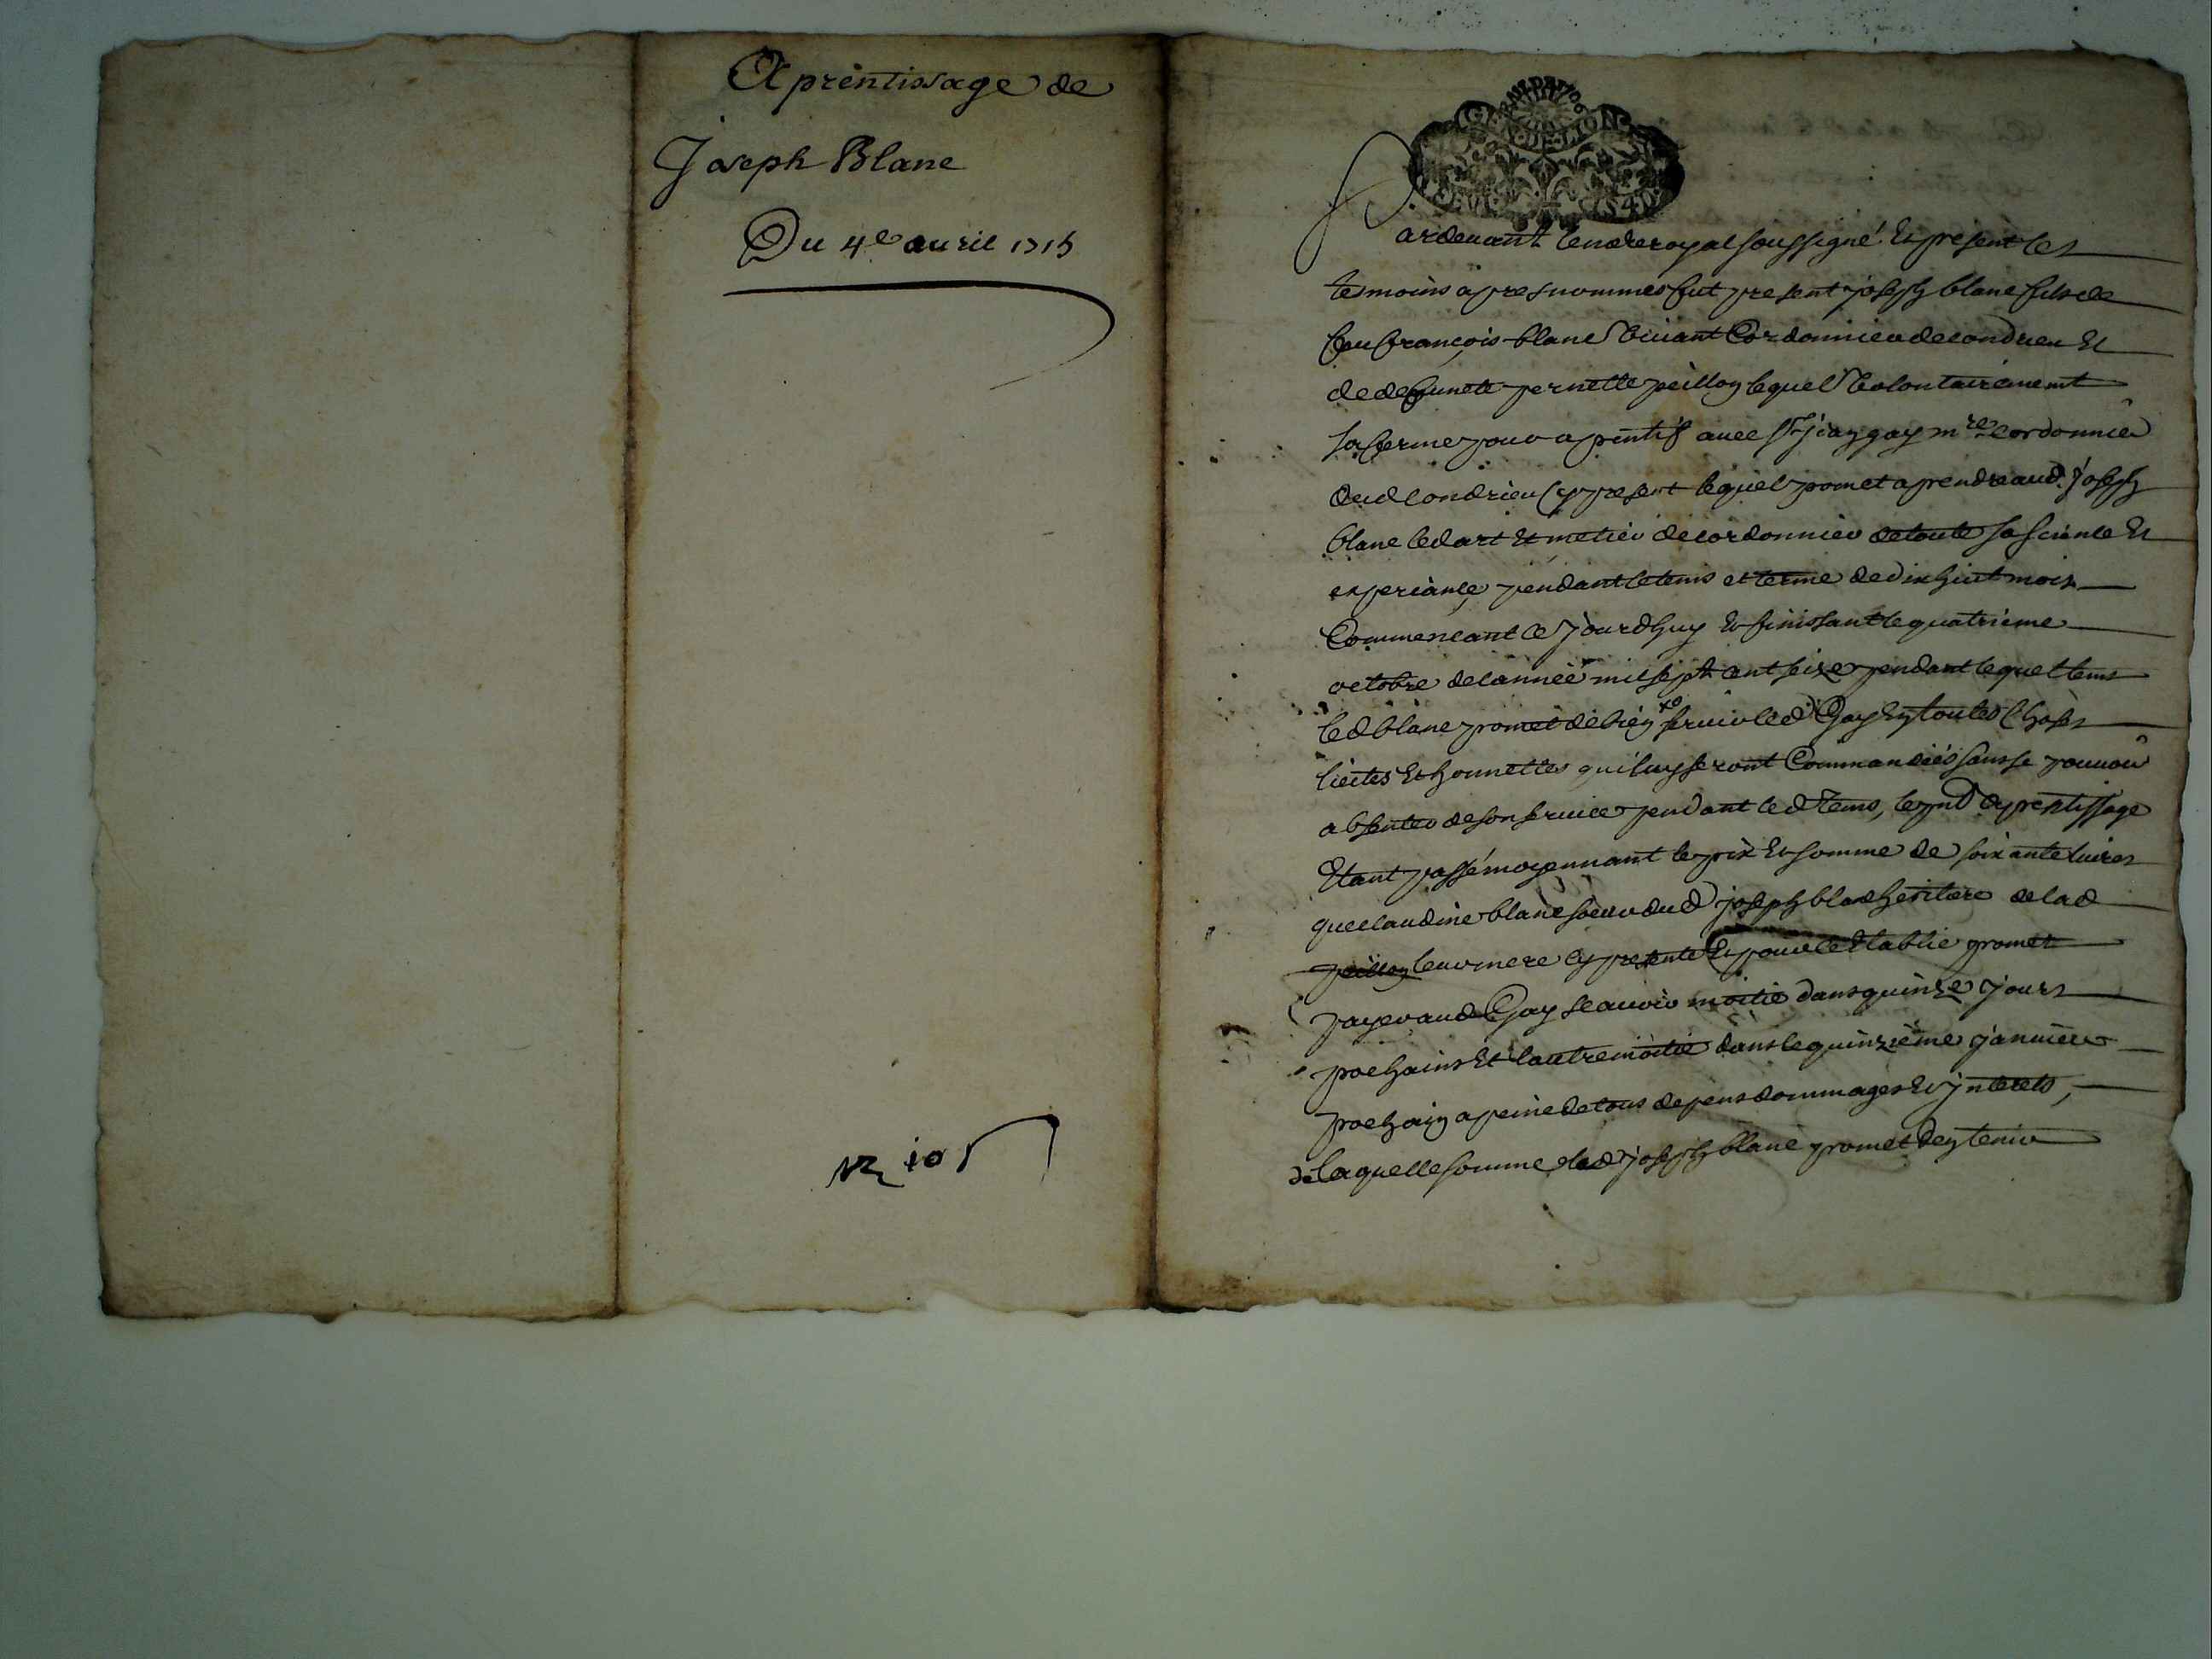 Aprentissage de
Joseph Blanc
Du 4e auril 1715
GENERALITE DE LION
Pardeuant le no.re royal soussigné Et presentz les
tesmoins apres nommes fut present joseph blanc fils de
feu françois blanc Viuant Cordonnier de condrieu Et
de defuncte pernette peillon lequel Volontairement
saferme pour aprentif auec Sr jean gay mre cordonnier
dud condrieu Cy present lequel promet aprendre aud. joseph
blanc led art Et metier de cordonnier de toute sa science Et
experiance, pendant le tems et terme de dix huit mois
Commencant ce jourdhuy Et finissant le quatrieme
octobre de lannée mil sept cent seize pendant lequel tems
led blanc promet de bien seruir led Gay En toutes Choses
licites Et honnettes qui luy seront Commandées sans se pouuoir
absenter de son seruice pendant led tems, le pnt aprentissage
Etant passé moyennant le prix Et somme de soixante liures
que claudine blanc soeur dud joseph blanc heritiere de lad
peillon leur mere cy presente Et pour ce Etablie promet
payer aud Gay scauoir moitié dans quinze jours
prochains Et lautre moitié dans le quinzieme januier
prochain a peine de tous depens dommages Et jnterets,
de laquelle somme led joseph blanc promet den tenir